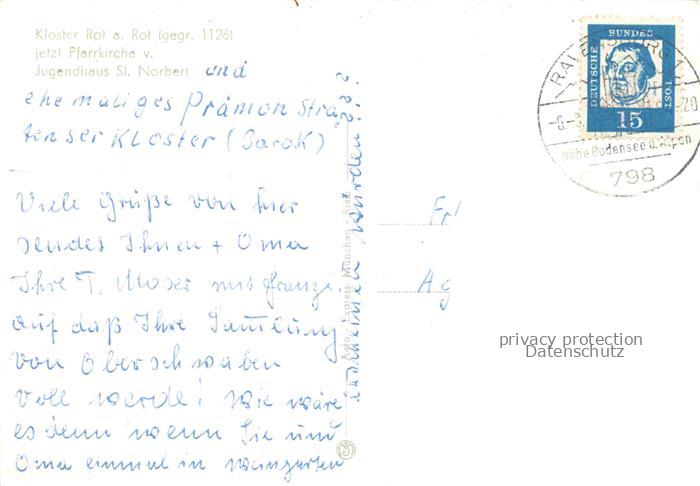 Kloster Rot a. Rot (gegr. 1126)
jetzt Pfarrkirche v.
Jugendhaus St. Norbert und
ehemaliges Prämonstra
tenser Kloster (Barok)
Viele Grüße von hier
sendet Ihnen + Oma
Ihre T. Moser mit Franzi.
auf daß Ihre Samlung
von Oberschwaben
voll werde! Wie wäre
es denn wenn Sie und
Oma einmal in Weingarten
erscheinen würden???
Auto-Express München
Fr
Ag
DEUTSCHE BUNDES POST
15
RAVENSBURG 1
-20
nahe Bodensee u. Alpen
798
privacy protection
Datenschutz